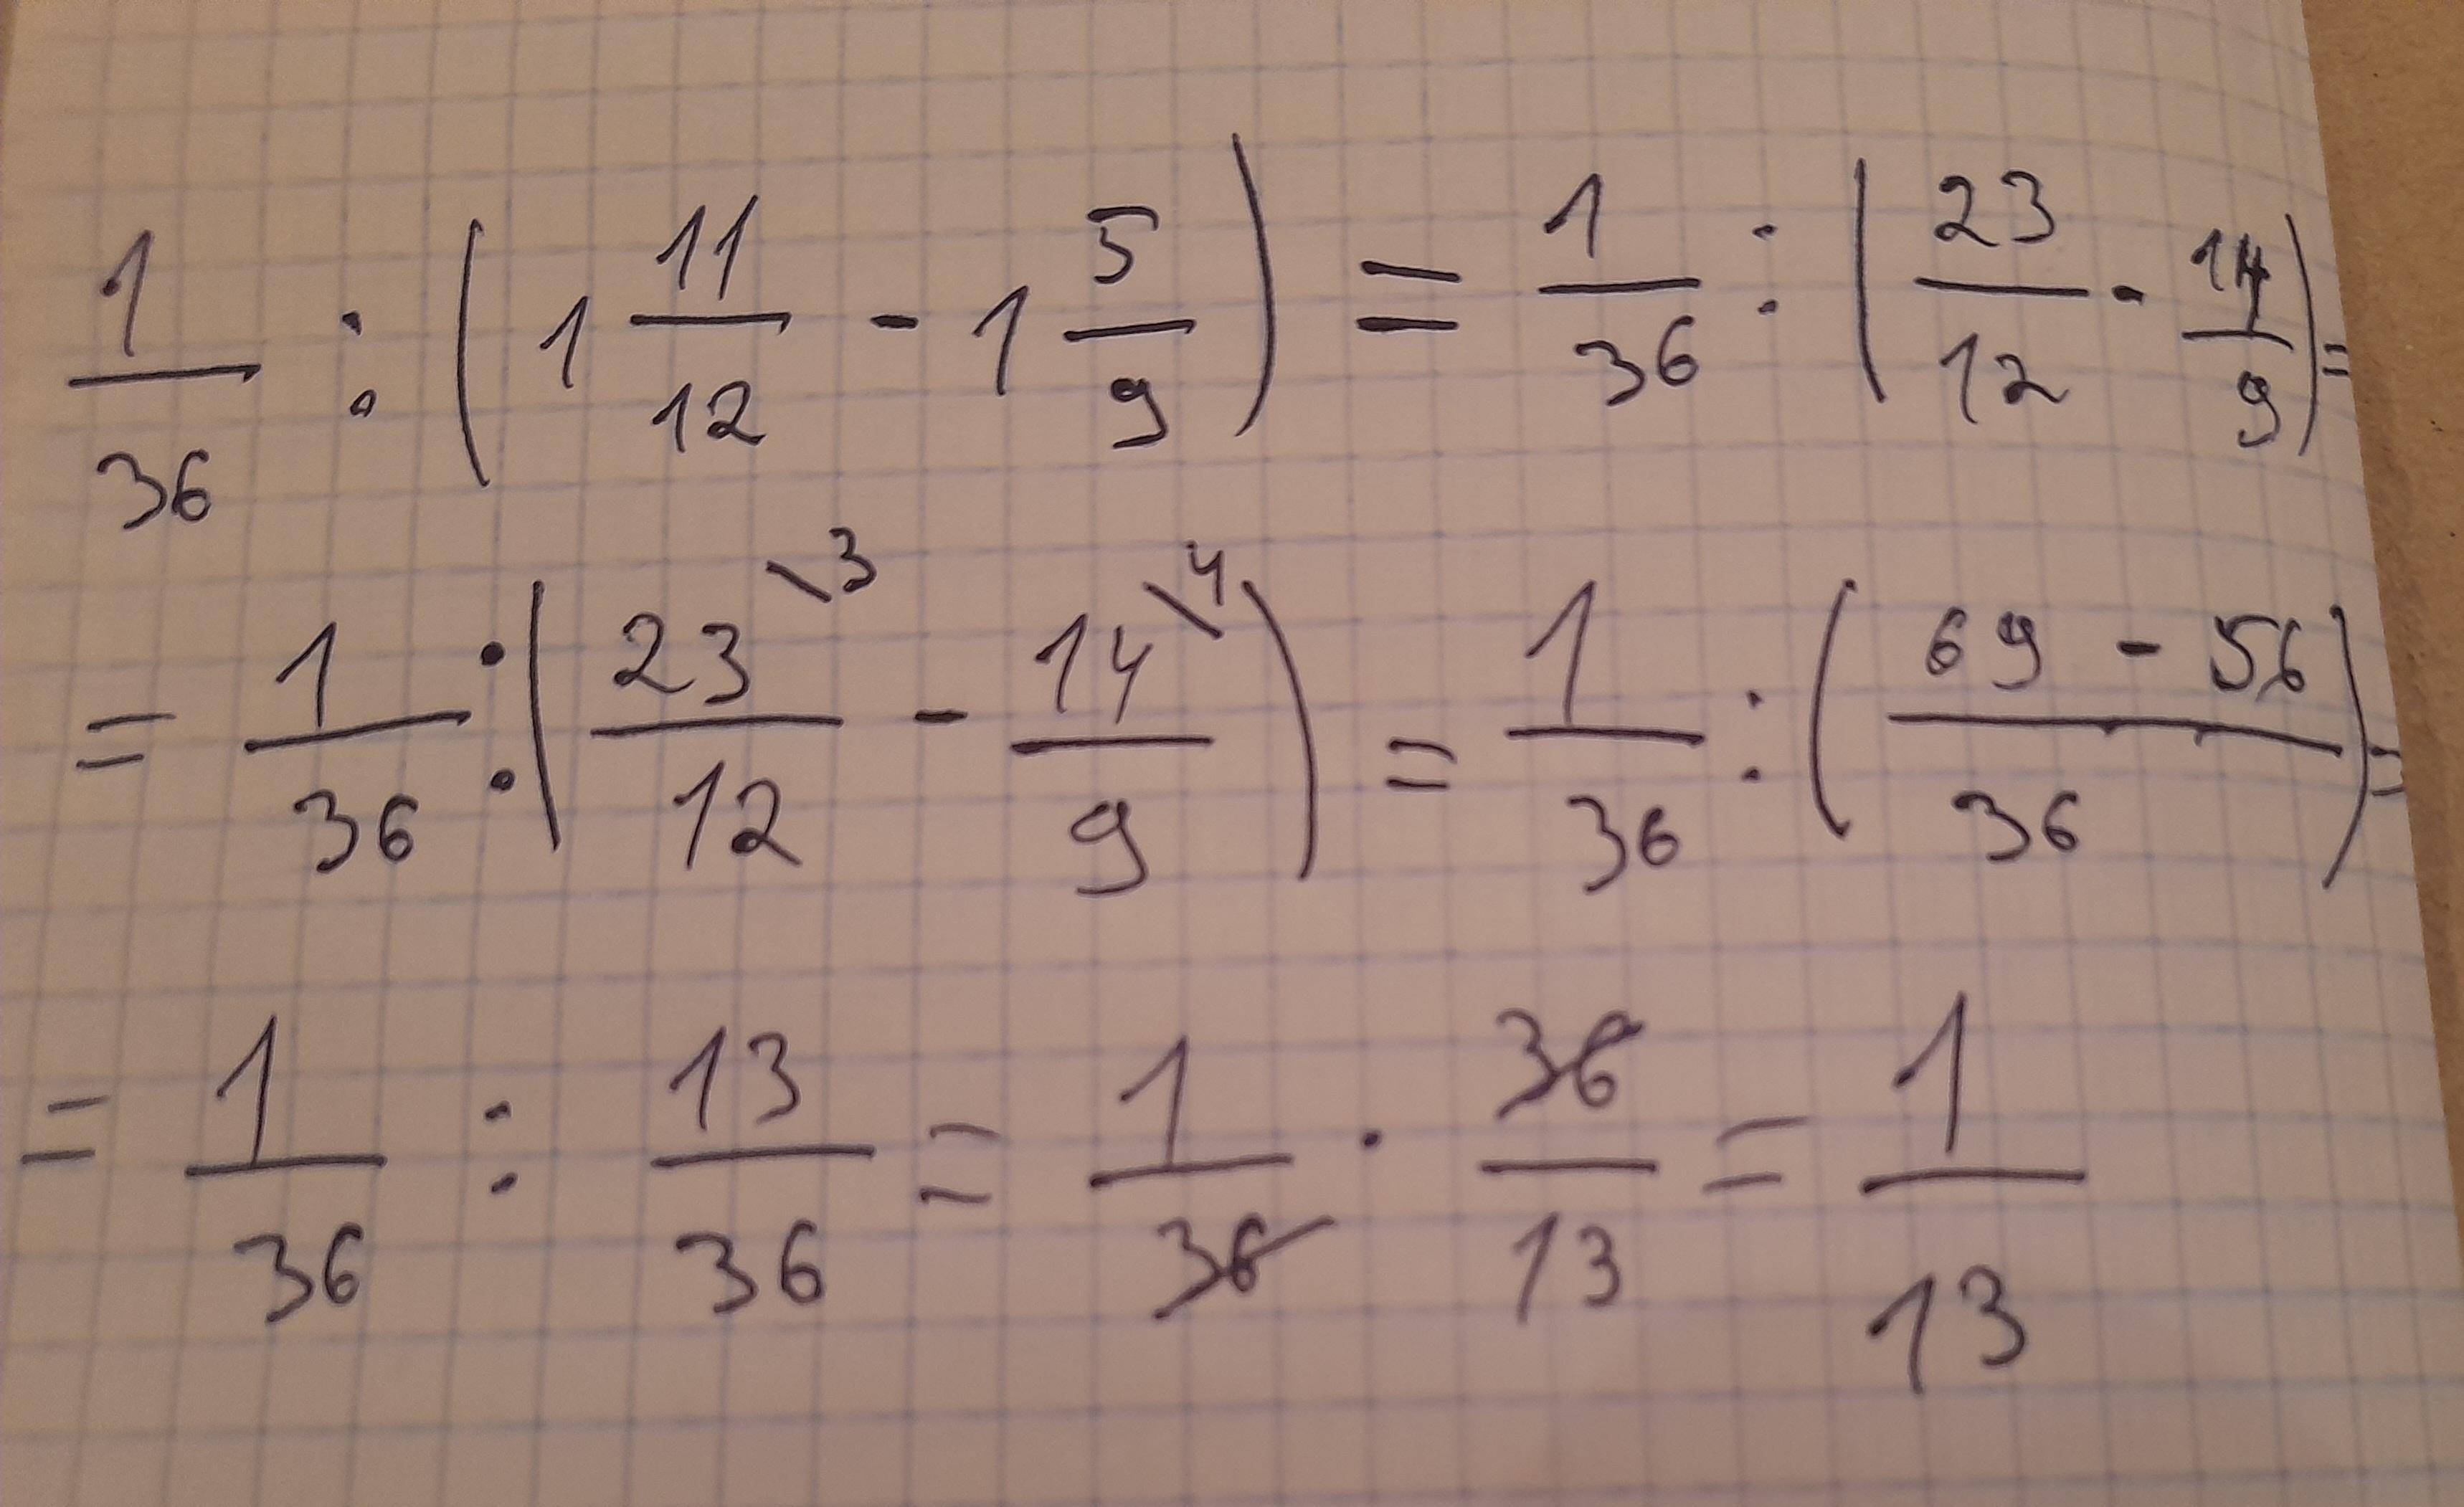 1/36 : (1 11/12 - 1 5/9) = 1/36 : (23/12 - 14/9) =
= 1/36 : (23\3/12 - 14\4/9) = 1/36 : ((69 - 56)/36) =
= 1/36 : 13/36 = 1/36 · 36/13 = 1/13